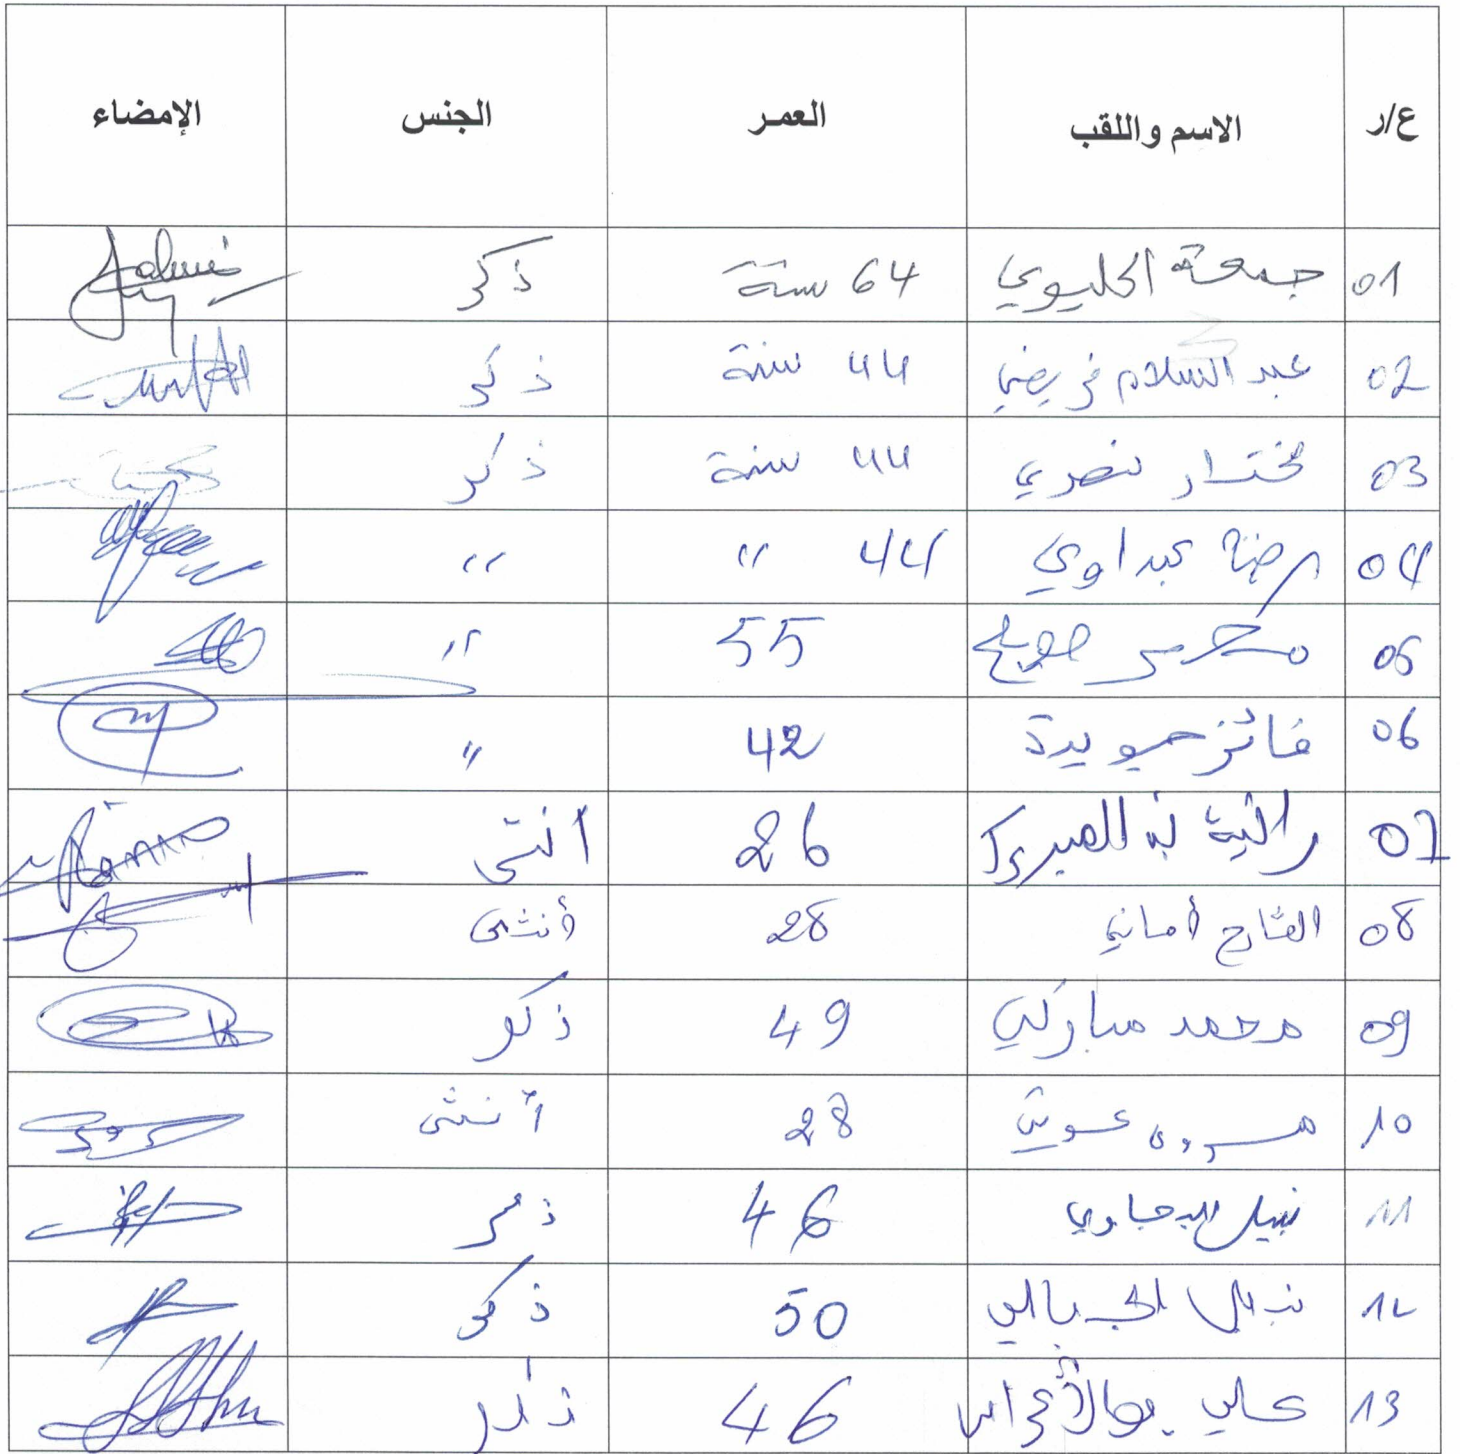 ع/ر الاسم واللقب العمر الجنس الإمضاء
01 جمعة الحليوي 64 سنة ذكر
02 عبد السلام فريضي 44 سنة ذكر
03 مختار نصري 44 سنة ذكر
04 رضا عبداوي 44 " "
05 محرز صويلح 55 "
06 فائز حيويدة 42 "
07 رانية بن المبروك 26 انثى
08 القارح أماني 28 أنثى
09 محمد مباركي 49 ذكر
10 28 أنثى
11 نبيل 46 ذكر
12 نبيل الجبالي 50 ذكر
13 علي بوالأعراس 46 ذكر